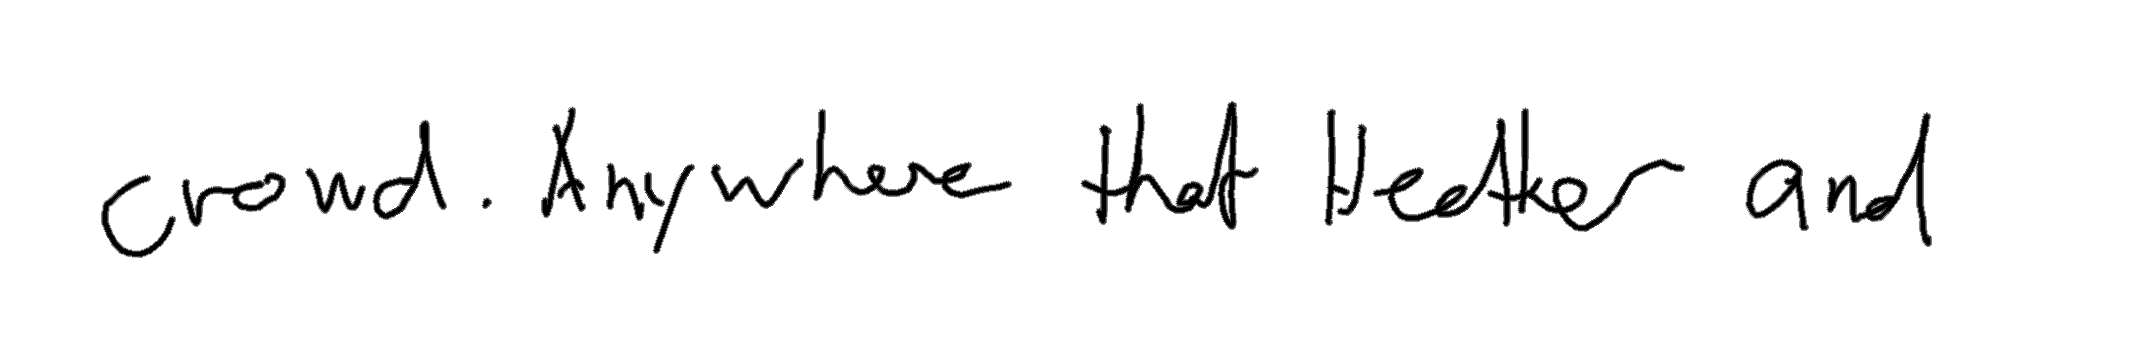 crowd. Anywhere that Heather and